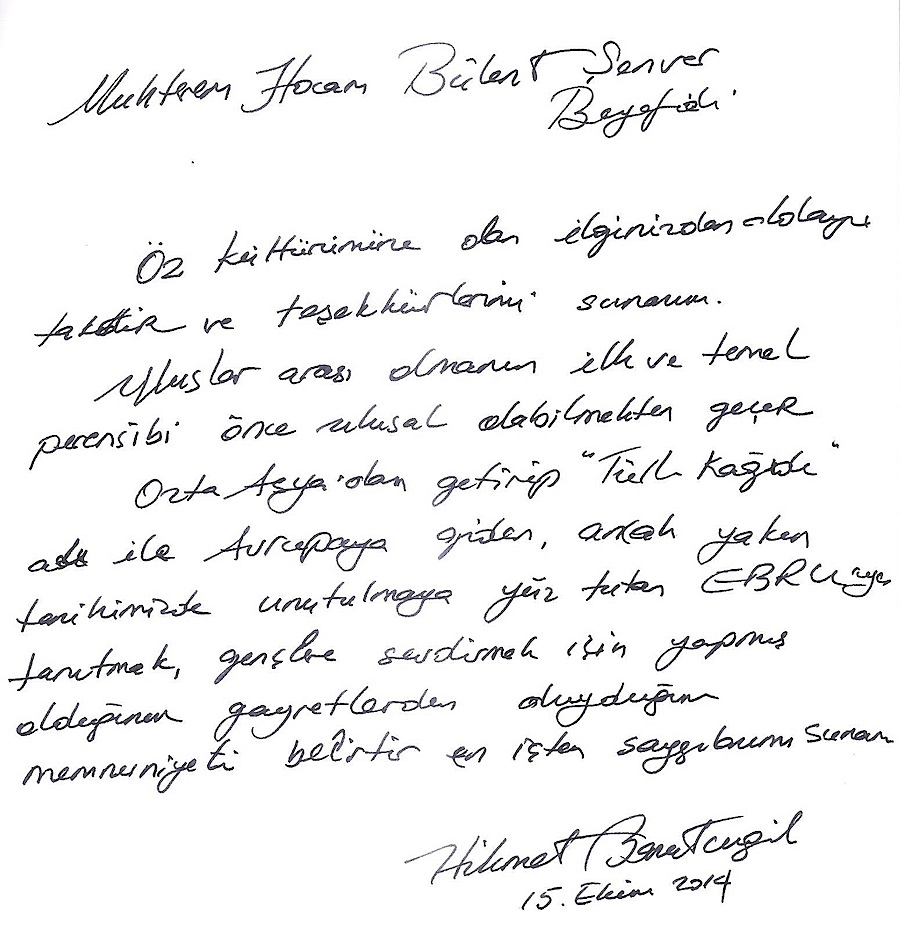 Muhterem Hocam Bülent Şenver
Beyefidi
Öz kültürümüze olan ilginizden dolayı
takdir ve teşekkürlerimi sunarım.
Uluslar arası olmanın ilk ve temel
perensibi önce ulusal olabilmekten geçer
Orta Asya'dan getirip "Türk Kağıdı"
adı ile Avrupaya giden, ancak yakın
tarihimizde unutulmaya yüz tutan EBRU'yu
tanıtmak, gençlere sevdirmek için yapmış
olduğunuz gayretlerden duyduğum
memnuniyeti belirtir en içten saygılarımı sunarım
Hikmet Barutcugil
15. Ekim 2014